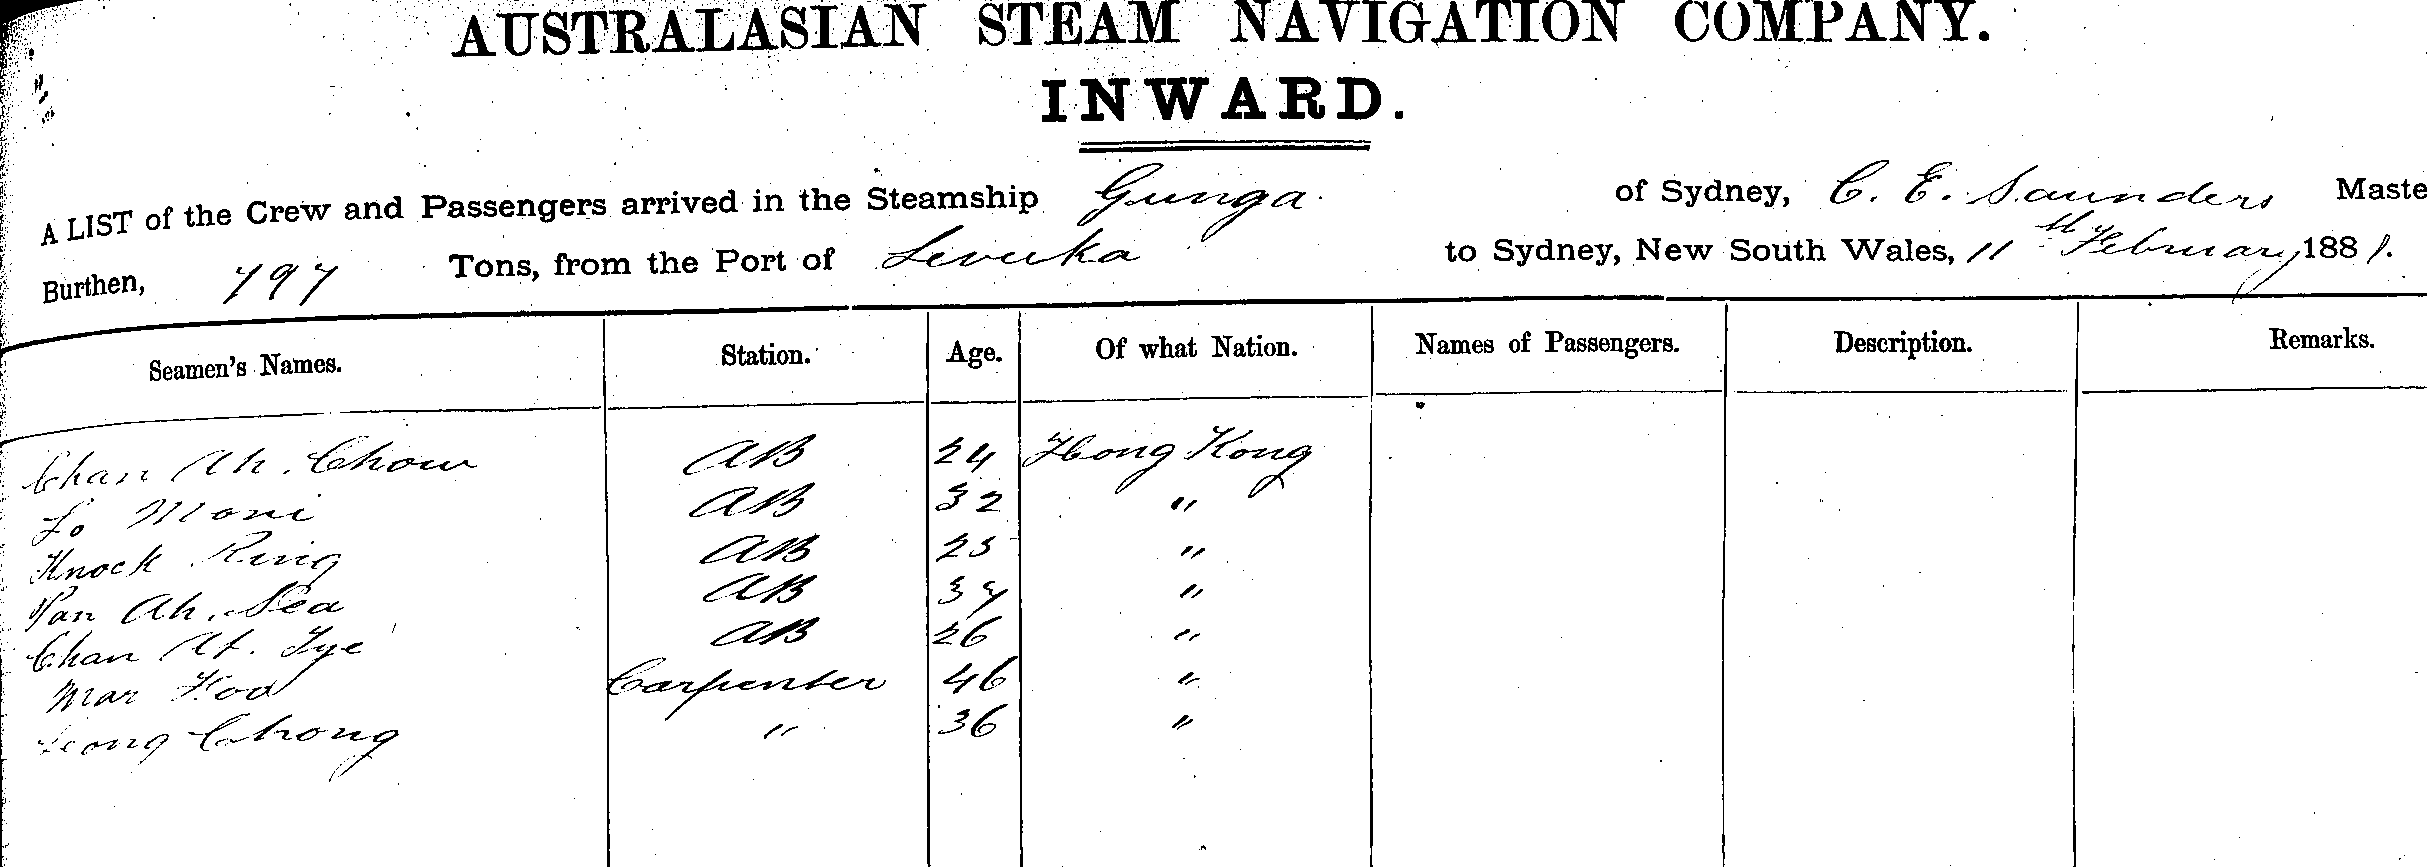 AUSTRALASIAN STEAM NAVIGATION COMPANY.
INWARD.
A LIST of the Crew and Passengers arrived in the Steamship Gunga of Sydney, C. E. Saunders Maste
Burthen, 797 Tons, from the Port of Levuka to Sydney, New South Wales, 11th February 1881.
Seamen's Names. Station. Age. Of what Nation. Names of Passengers. Description. Remarks.
Chan Ah. Chow AB 24 Hong Kong
Lo Moni AB 32 "
Knock King AB 25 "
Pan Ah. Sea AB 37 "
Chan At. Tye AB 26 "
Mar Hoa Carpenter 46 "
Leong Chong " 36 "